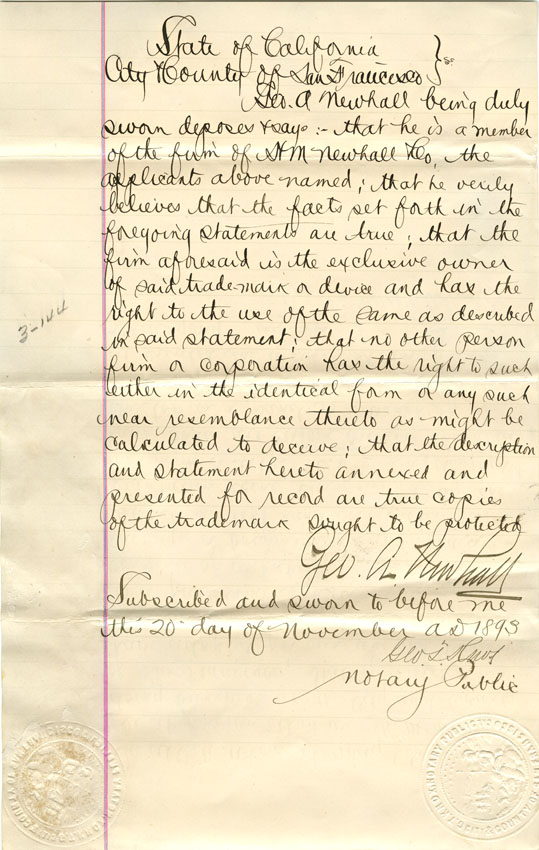 State of California
City & County of San Francisco } ss
Geo. A Newhall being duly
sworn deposes & says :- that he is a member
of the firm of H M Newhall & Co, the
applicants above named ; that he verily
believes that the facts set forth in the
foregoing statements are true ; that the
firm aforesaid is the exclusive owner
of said trade-mark or device and has the
right to the use of the same as described
in said statement ; that no other person
3-144
firm or corporation has the right to such
either in the identical form or any such
near resemblance thereto as might be
calculated to deceive ; that the description
and statement hereto annexed and
presented for record are true copies
of the trademark sought to be protected
Geo. A. Newhall
Subscribed and sworn to before me
this 20 day of November AD 1893
Geo. T.
Notary Public
NOTARY PUBLIC